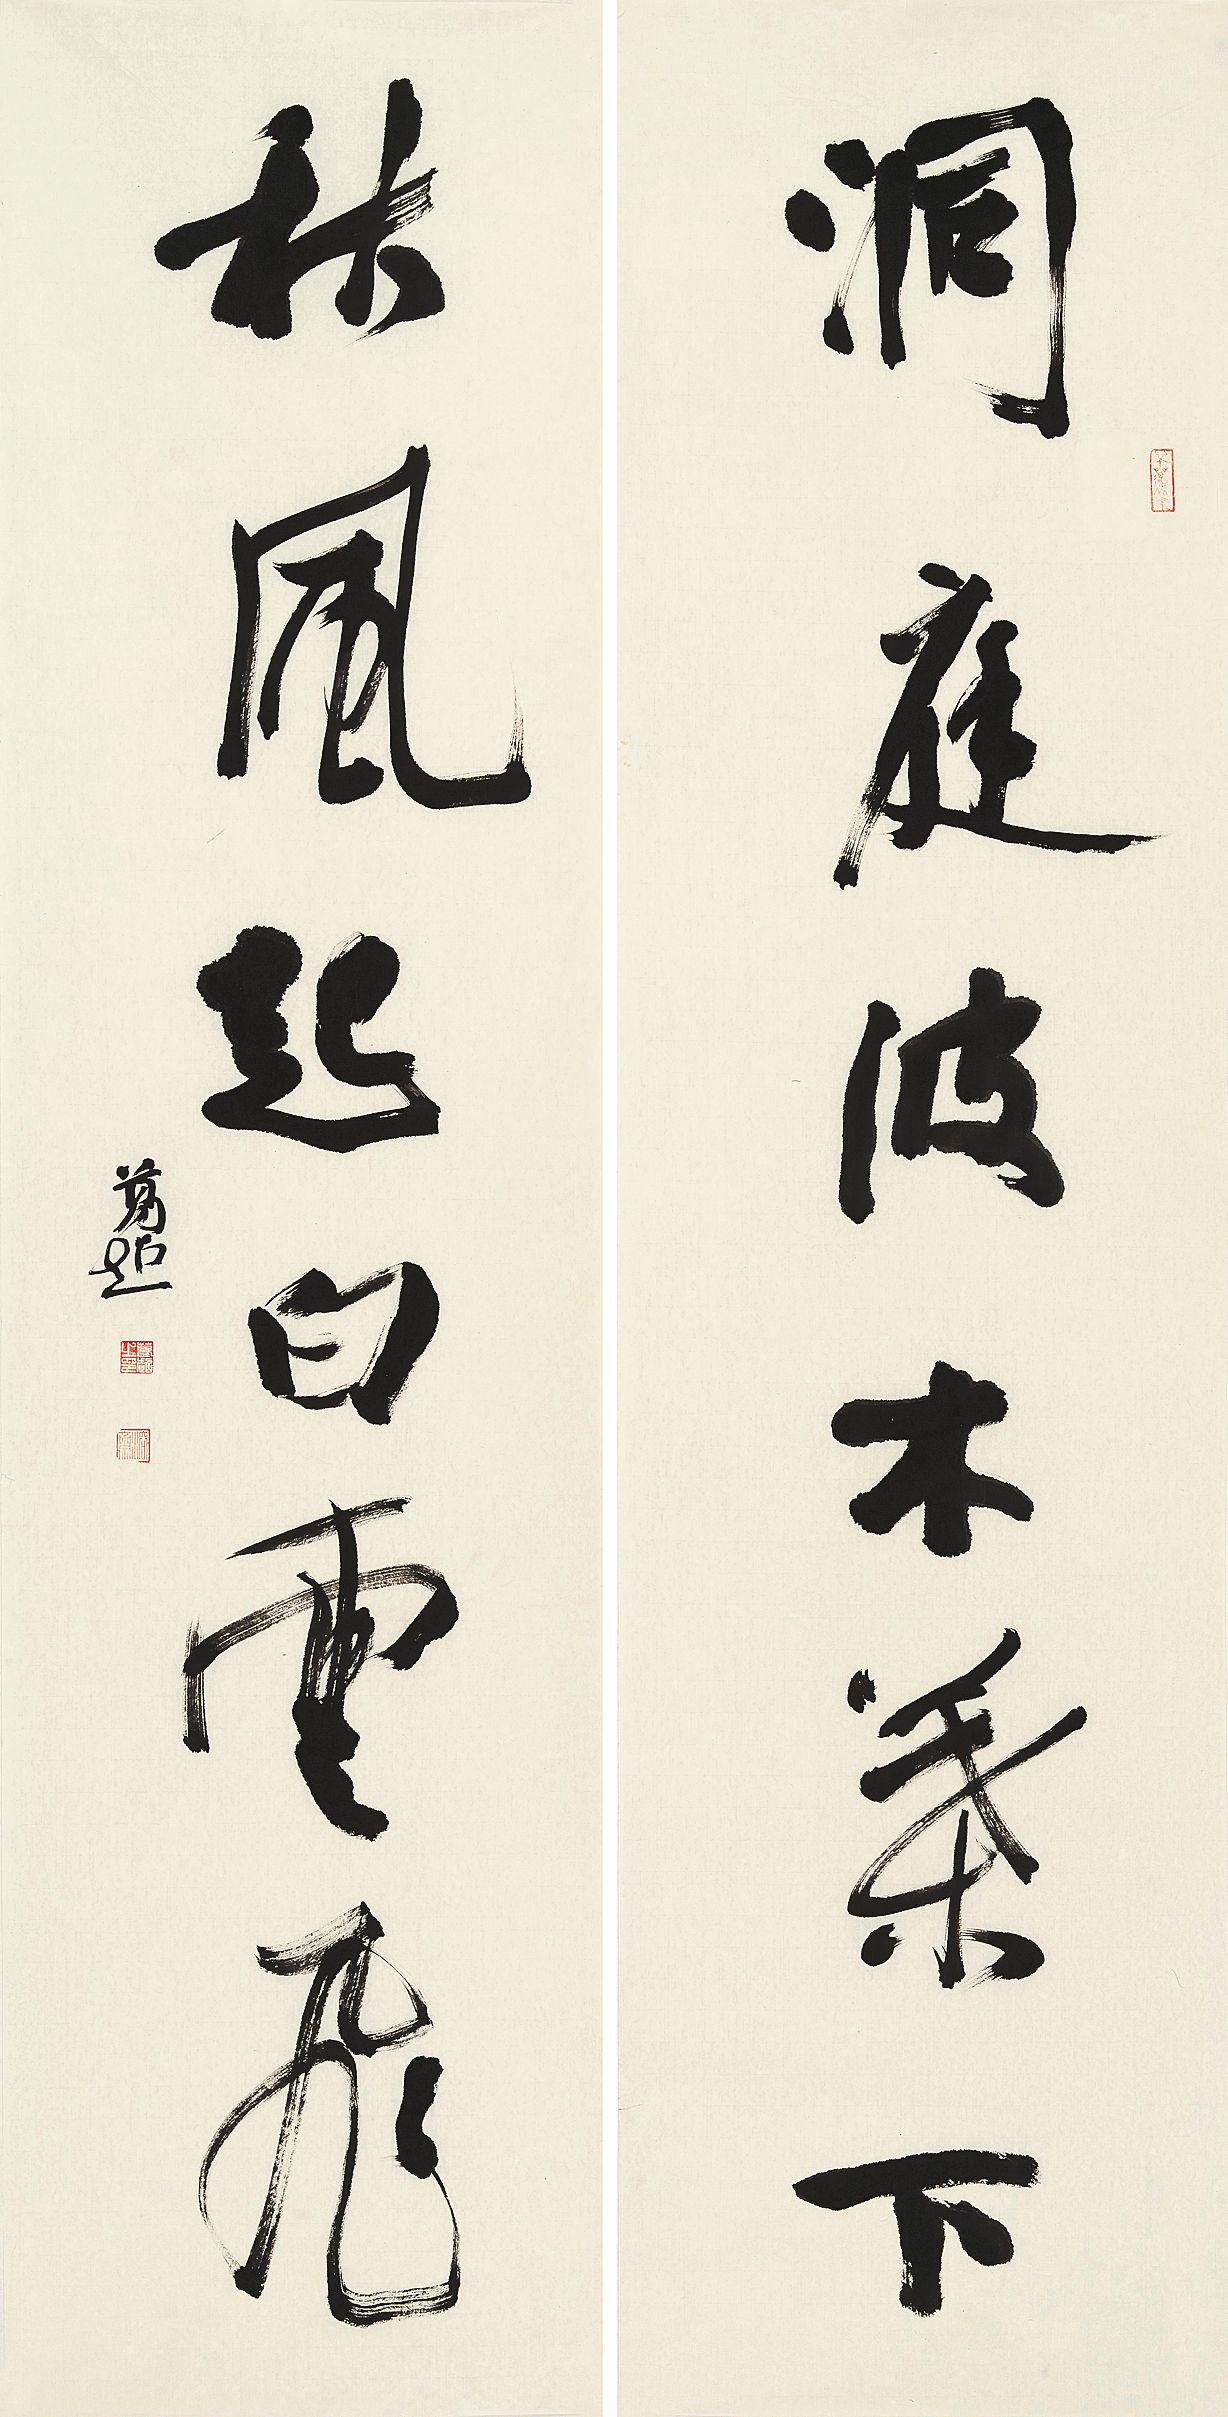 洞庭波木葉下
秋風起白雲飛
葛超